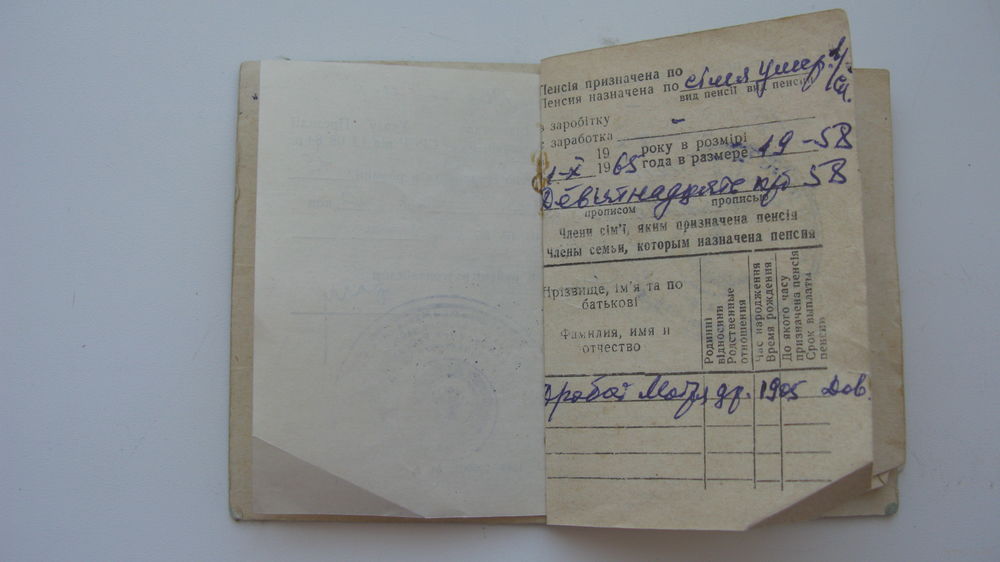 Пенсія призначена по
Пенсия назначена по сімя умер.
вид пенсії вид пенсии
з заробітку
с заработка –
19 року в розмірі
1-X 1965 года в размере 19-58
Девьятнадцять крб 58
прописом прописью
Члени сім'ї, яким призначена пенсія
Члены семьи, которым назначена пенсия
Прізвище, ім'я та по
батькові
Фамилия, имя и
отчество
Родинні
відносини
Родственные
отношения
Час народження
Время рождения
До якого часу
призначена пенсія
Срок выплаты
пенсии
Дробот Мотря др. 1905 Дов.